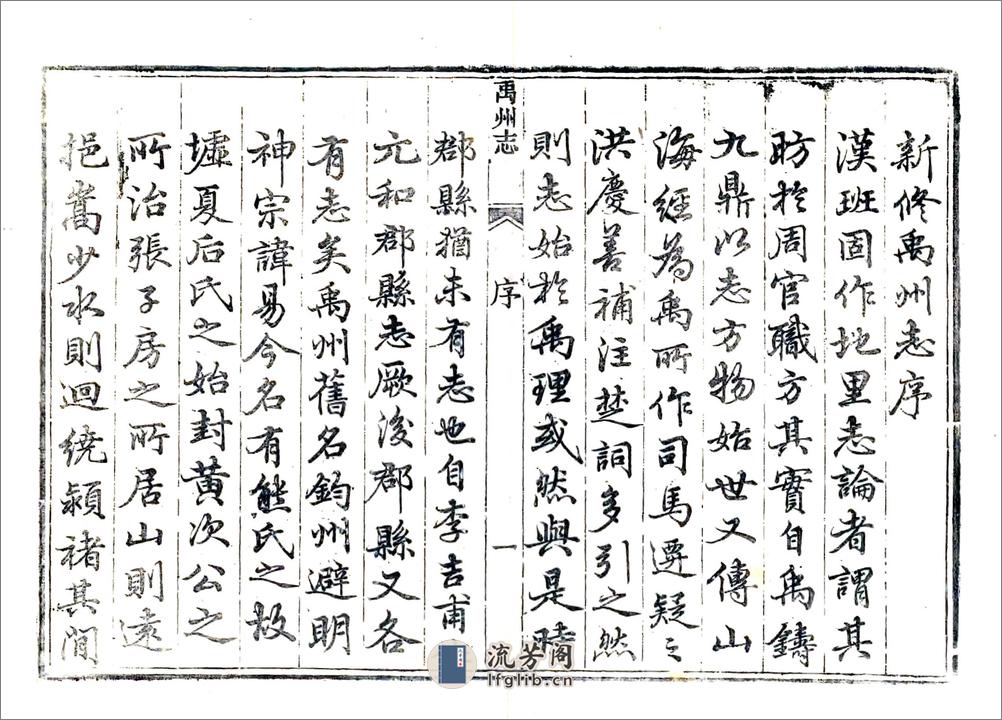 新修禹州志序
漢班固作地里志論者謂其
昉於周官職方其實自禹鑄
九鼎以志方物始世又傳山
海經為禹所作司馬遷疑之
洪慶善補注楚詞多引之然
則志始於禹理或然與是時
禹州志
序
一
郡縣猶未有志也自李吉甫
元和郡縣志厥後郡縣又各
有志矣禹州舊名鈞州避明
神宗諱易今名有熊氏之故
墟夏后氏之始封黃次公之
所治張子房之所居山則遠
挹嵩少水則迴繞潁褚其間
流芳阁
lfglib.cn